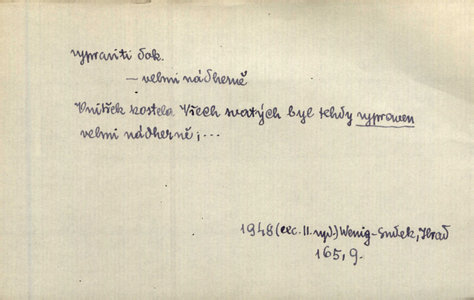 vypraviti dok.
— velmi nádherně
Vnitřek kostela Všech svatých byl tehdy vypraven
velmi nádherně; ...
1948 (sec. II. vyd.) Wenig-Snížek, Hrad
165, 9.